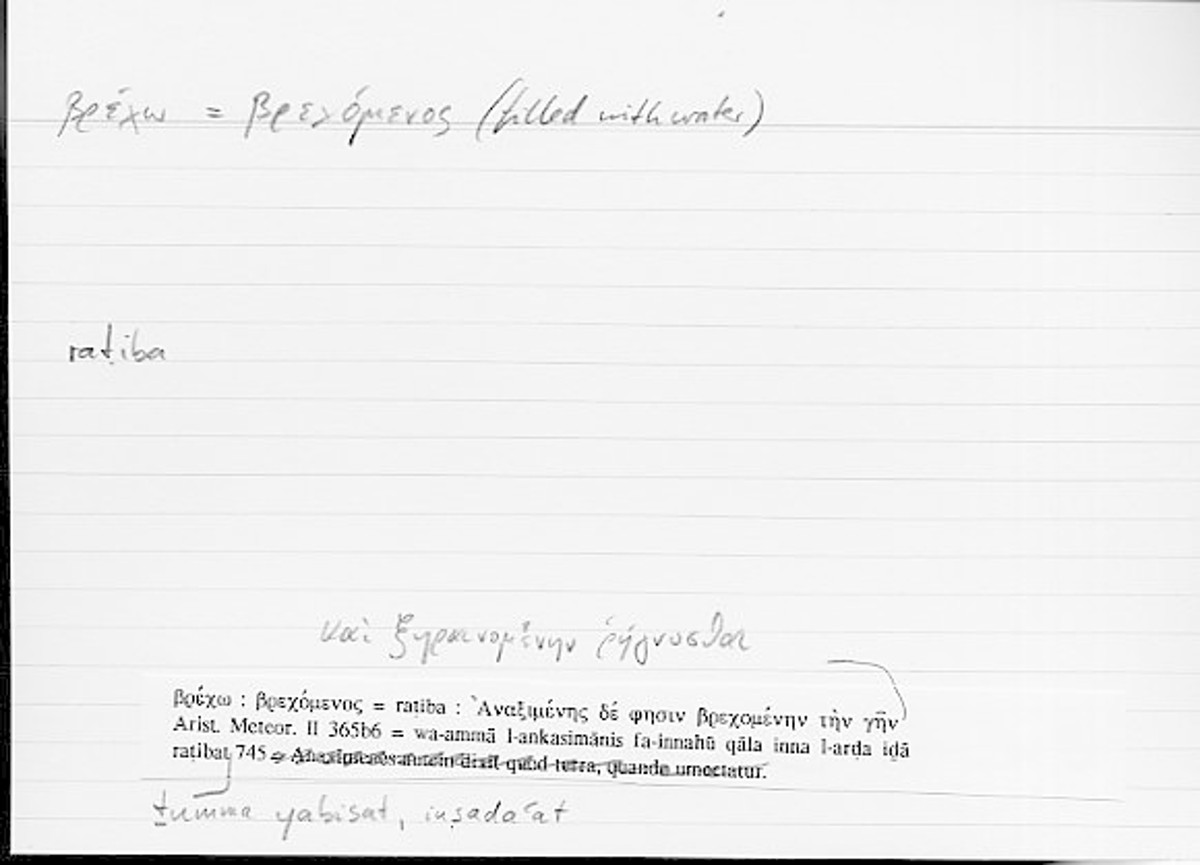 βρέχω = βρεχόμενος (filled with water)
raṭiba
καὶ ξηραινομένην ῥήγνυσθαι
βρέχω : βρεχόμενος = raṭiba : Ἀναξιμένης δέ φησιν βρεχομένην τὴν γῆν
Arist. Meteor. II 365b6 = wa-ammā l-ankasimānis fa-innahū qāla inna l-arḍa iḏā
raṭibat 745 = Anaximenes autem dixit quod terra, quando umectatur.
ṯumma yabisat, inṣadaʿat